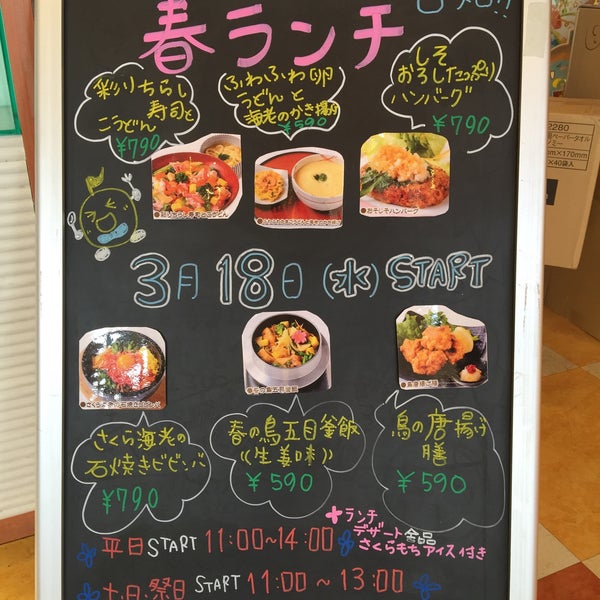 春ランチ
彩りちらし
寿司と
こうどん
¥790
ふわふわ卵
うどんと
海老のかき揚げ
¥590
しそ
おろしたっぷり
ハンバーグ
¥790
●おそしそハンバーグ
3月18日(水)START
さくら海老の
石焼きビビンバ
¥790
春の鳥五目釜飯
《生姜味》
¥590
鳥の唐揚げ
膳
¥590
平日START 11:00~14:00
+ランチ
デザート全品
さくらもちアイス付き
土.日.祭日 START 11:00~13:00
2280
ペーパータオル
×170mm
×40袋入